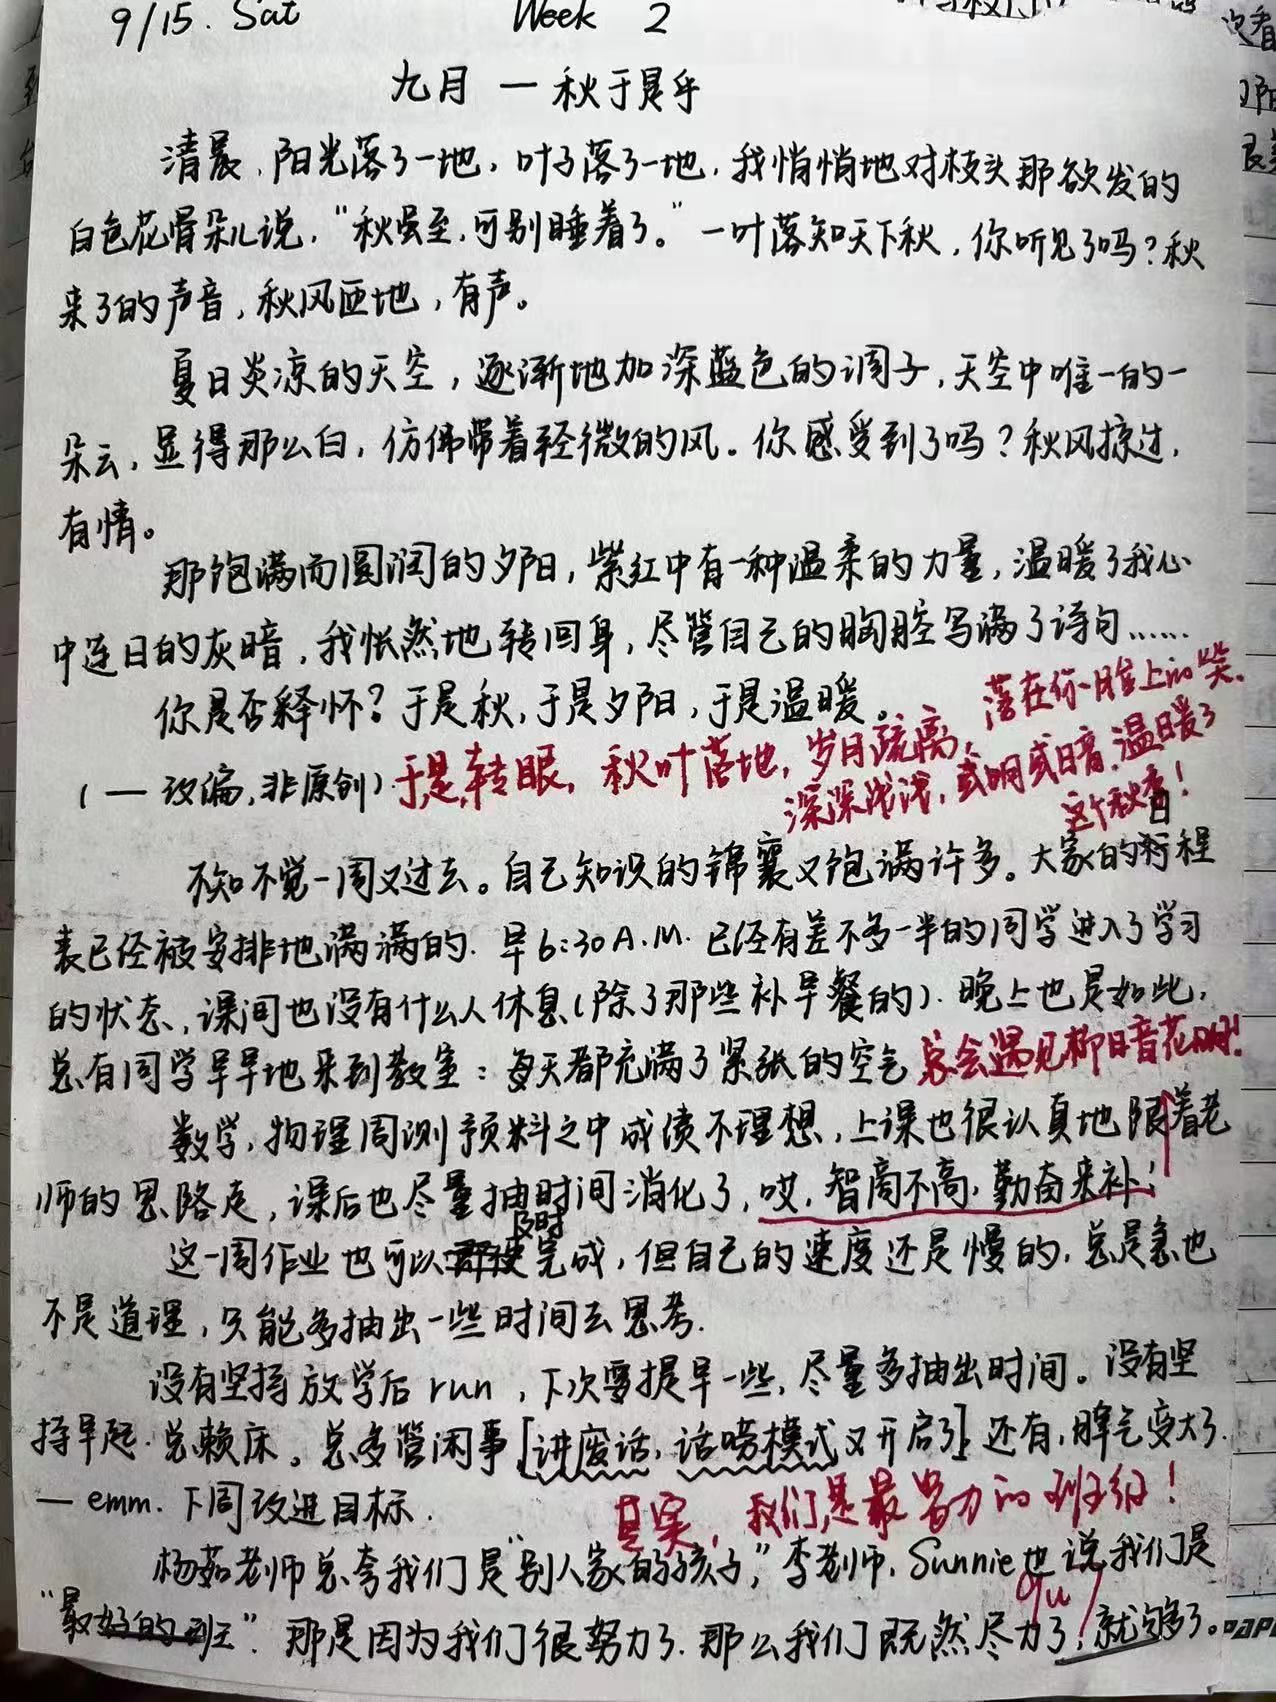 9/15. Sat Week 2
九月 — 秋于是乎
清晨,阳光落了一地,叶子落了一地,我悄悄地对枝头那欲发的
白色花骨朵儿说,“秋虽至,可别睡着了。”一叶落知天下秋,你听见了吗?秋
来了的声音,秋风匝地,有声。
夏日炎凉的天空,逐渐地加深蓝色的调子,天空中唯一的一
朵云,显得那么白,仿佛带着轻微的风。你感受到了吗?秋风掠过,
有情。
那饱满而圆润的夕阳,紫红中有一种温柔的力量,温暖了我心
中连日的灰暗,我怅然地转回身,尽管自己的胸腔写满了诗句……
你是否释怀?于是秋,于是夕阳,于是温暖。
(— 改编,非原创)
于是,转眼,秋叶落地,岁月疏离,落在你脸上的笑,
深深浅浅,或明或暗,温暖了
这个秋日!
不知不觉一周又过去。自己知识的锦囊又饱满许多。大家的行程
表已经被安排地满满的.早6:30A.M.已经有差不多一半的同学进入了学习
的状态,课间也没有什么人休息(除了那些补早餐的).晚上也是如此,
总有同学早早地来到教室:每天都充满了紧张的空气
总会遇见柳暗花明!
数学,物理周测预料之中成绩不理想,上课也很认真地跟着老
师的思路走,课后也尽量抽时间消化了,哎,智商不高,勤奋来补!
这一周作业也可以及时完成,但自己的速度还是慢的,总是急也
不是道理,只能多抽出一些时间去思考.
没有坚持放学后run,下次要提早一些,尽量多抽出时间。没有坚
持早起.总赖床。总多管闲事[讲废话,话唠模式又开启了]还有,脾气变大了.
— emm.下周改进目标.
其实,我们是最努力的班级!
杨茹老师总夸我们是“别人家的孩子,”李老师,Sunnie也说我们是
“最好的班”.那是因为我们很努力了.那么我们既然尽力了,就够了。